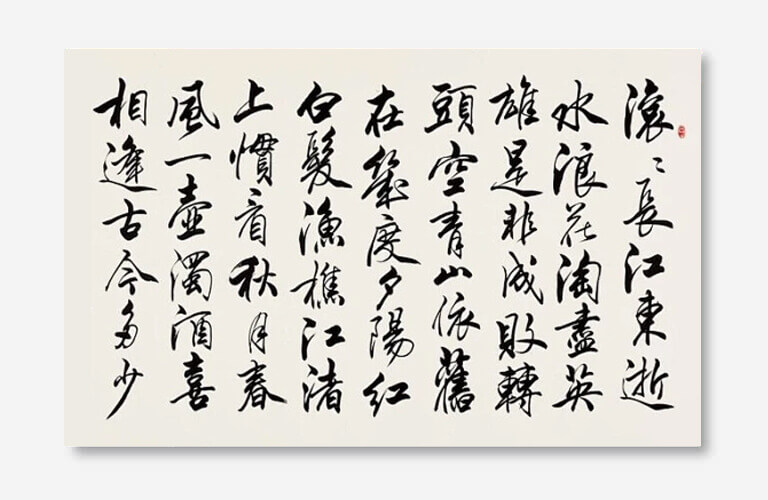 滾〻長江東逝
水浪花淘盡英
雄是非成敗轉
頭空青山依舊
在幾度夕陽紅
白髮漁樵江渚
上慣看秋月春
風一壺濁酒喜
相逢古今多少